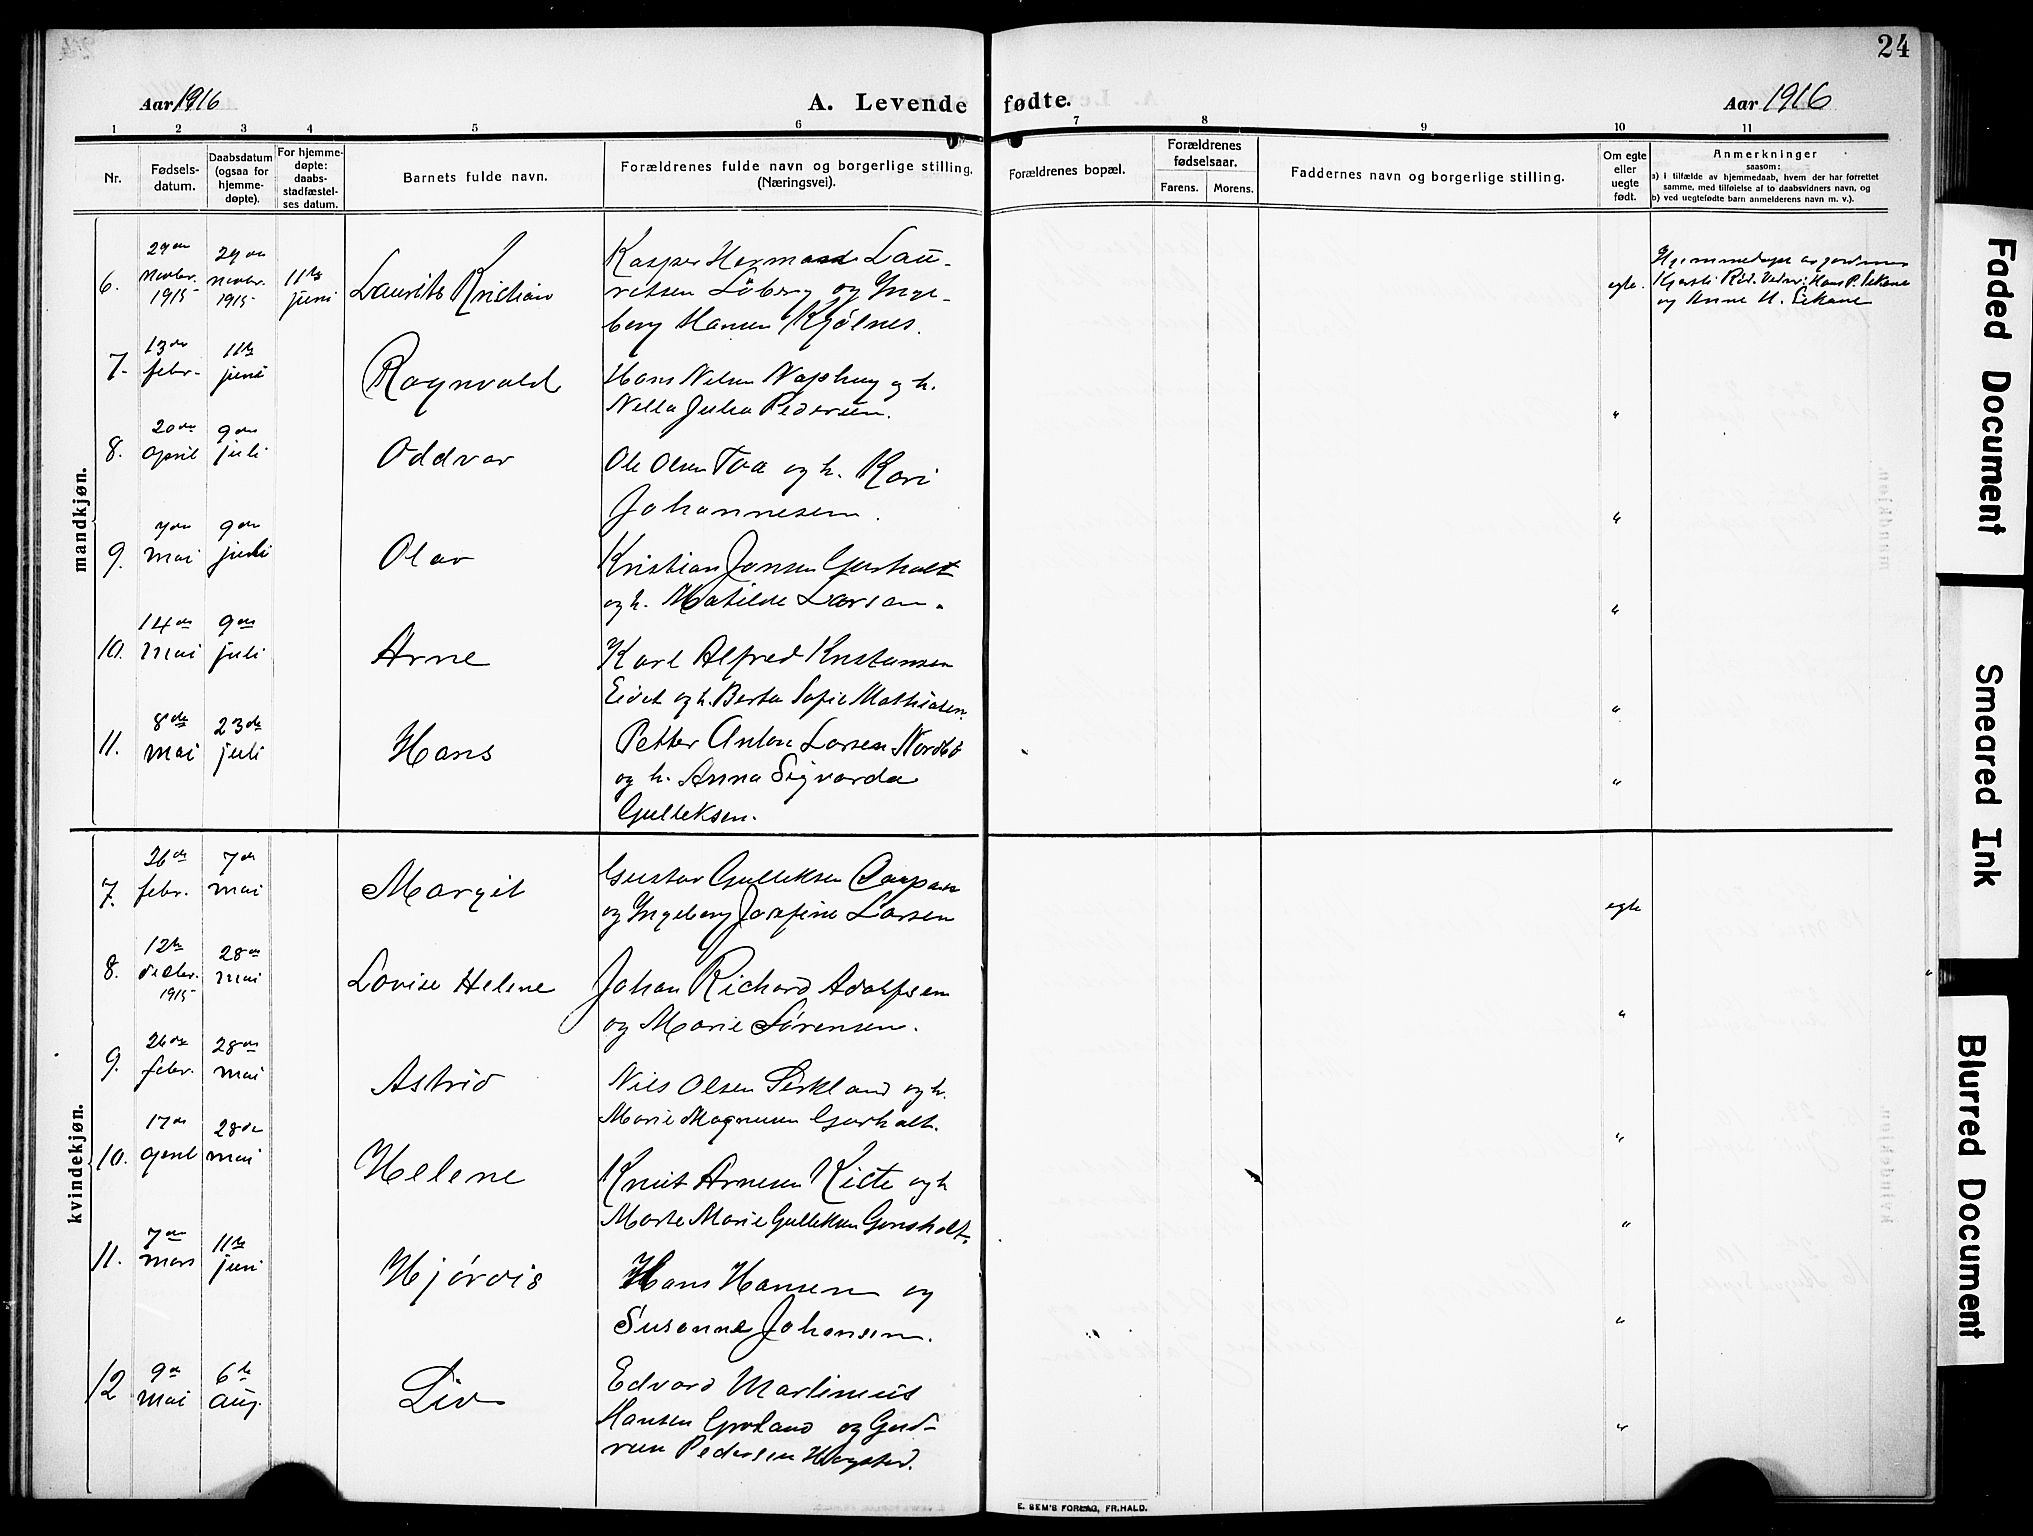 24
Aar 1916
A. Levende fødte.
Aar 1916
1 2 3 4 5 6 7 8 9 10 11
Nr.
Fødsels-
datum.
Daabsdatum
(ogsaa for
hjemme-
døpte).
For hjemme-
døpte:
daabs-
stadfæstel-
ses datum.
Barnets fulde navn.
Forældrenes fulde navn og borgerlige stilling.
(Næringsvei).
Forældrenes bopæl.
Forældrenes
fødselsaar.
Farens. Morens.
Faddernes navn og borgerlige stilling.
Om egte
eller
uegte
født.
Anmerkninger
saasom:
a) i tilfælde av hjemmedaab, hvem der har forrettet
samme, med tilføielse af to daabsvidners navn, og
b) ved uegtefødte barn anmelderens navn m. v.).
mandkjøn.
6.
29de
novbr.
1915
29de
novbr.
1915
11te
juni
Laurits Kristian
Kasper Herman Lau-
ritsen Löberg og Inge-
borg Hansen Kjölnes.
egte.
Hjemmedøpt av jordmor
Kjersti Rød. Vidner: Hans P. Sekane
og Anne H. Sekane
7.
13de
febr.
11te
juni
Ragnvald
Hans Nilsen og h.
Nella Julia Pedersen.
"
8.
20de
april
9de
juli
Oddvar
Ole Olsen Tva og h. Kari
Johannesen.
"
9.
7de
mai
9de
juli
Olav
Kristian Jonsen Gusholt
og h. Matilde Larsen.
"
10.
14de
mai
9de
juli
Arne
Karl Alfred Kristiansen
Eidet og h. Berta Sofie Mathisen.
"
11.
8de
mai
23de
juli
Hans
Petter Anton Larsen Nordbö
og h. Anna Sigvarda
Gulleksen.
"
kvindekjøn.
7.
26de
febr.
7de
mai
Margit
Gustav Gulleksen
og Ingeborg Josefine Larsen
egte
8.
12te
decbr.
1915
28de
mai
Lovise Helene
Johan Richard Adolfsen
og Marie Sørensen.
"
9.
26de
febr.
28de
mai
Astrid
Nils Olsen Serkland og h.
Marie Magnusen Gusholt.
"
10.
17de
april
28de
mai
Helene
Knut Arnesen Kiste og h
Marte Marie Gulleksen Gonsholt.
"
11.
7de
mars
11te
juni
Hjørdis
Hans Hansen og
Susanne Johansen.
"
12
9de
mai
6te
aug.
Liv
Edvard Martinius
Hansen Grorland og Gud-
run Pedersen Hogstad.
"
E. SEM'S FORLAG, FR.HALD.
Faded Document
Smeared Ink
Blurred Document